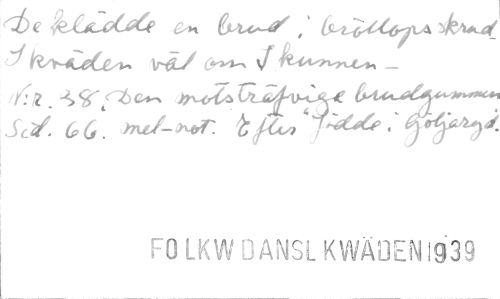 De klädde en brud i bröllopsskrud
I kväden väl om I kunnen –
Nr. 38, Den motsträfvige brudgummen
Sid. 66. mel-not. Efter "Jödde i Göljaryd".
FOLKWDANSLKWÄDEN1939